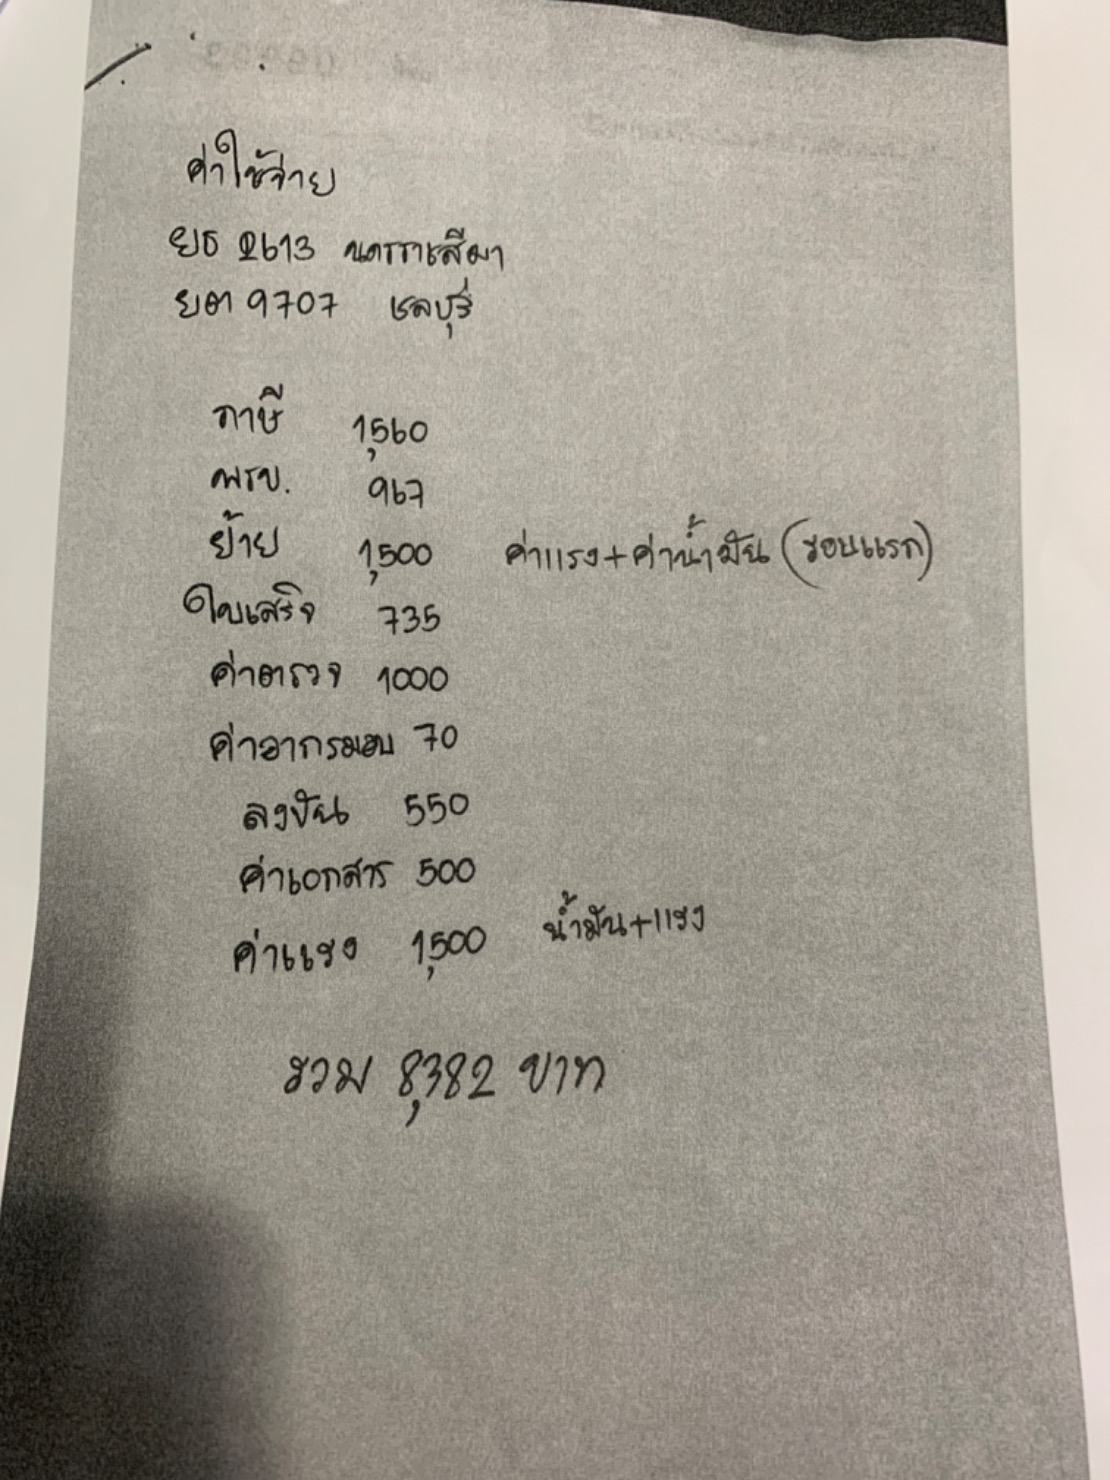 ค่าใช้จ่าย
ยธ 2613 นครราชสีมา
ยต 9707 ชลบุรี
ภาษี 1,560
พรบ. 967
ย้าย 1,500 ค่าแรง+ค่าน้ำมัน (รอบแรก)
ใบเสร็จ 735
ค่าตรวจ 1000
ค่าอากรมอบ 70
ลงขัน 550
ค่าเอกสาร 500
ค่าแรง 1,500 น้ำมัน+แรง
รวม 8,382 บาท